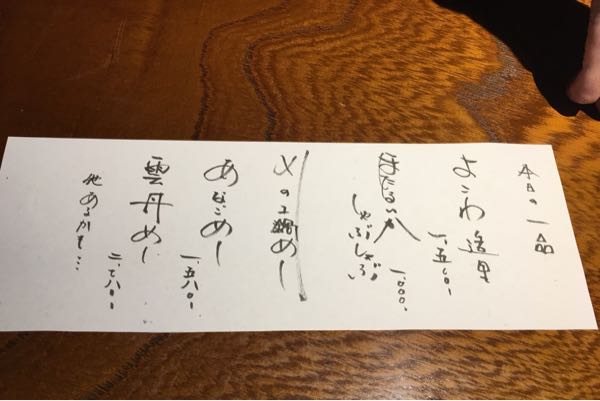 本日の一品
よこわ造里
一、五〇〇-
ほたるいか
しゃぶしゃぶ
一、〇〇〇.
〆の土鍋めし
あなごめし
一、五八〇-
雲丹めし
二、六八〇-
他あるかも…